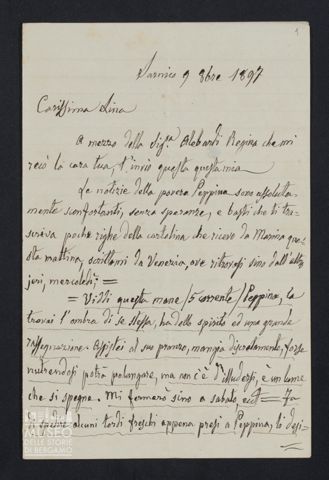 1
Sarnico 9 8bre 1897
Carissima Lina
A mezzo della Sig.ª Alebardi Regina che mi
recò la cara tua, t'invio questa mia
Le notizie della povera Peppina sono assoluta-
mente sconfortanti, senza speranze, e basti che ti tra-
scriva poche righe della cartolina che ricevo da Marina que-
sta mattina, scrittami da Venezia, ove ritrovasi sino dall'altro
jeri, mercoledì; =
= Vidi questa mane / 5 corrente / Peppina, la
trovai l'ombra di se stessa, ha dello spirito ed una grande
rassegnazione. Assistei al suo pranzo, mangia discretamente, forse
nutrendosi potrà prolungare, ma non c'è d'illudersi, è un lume
che si spegne. Mi fermerò sino a sabato, =
alcuni tordi freschi appena presi a Peppina, lo desi-
MUSEO
DELLE STORIE
DI BERGAMO